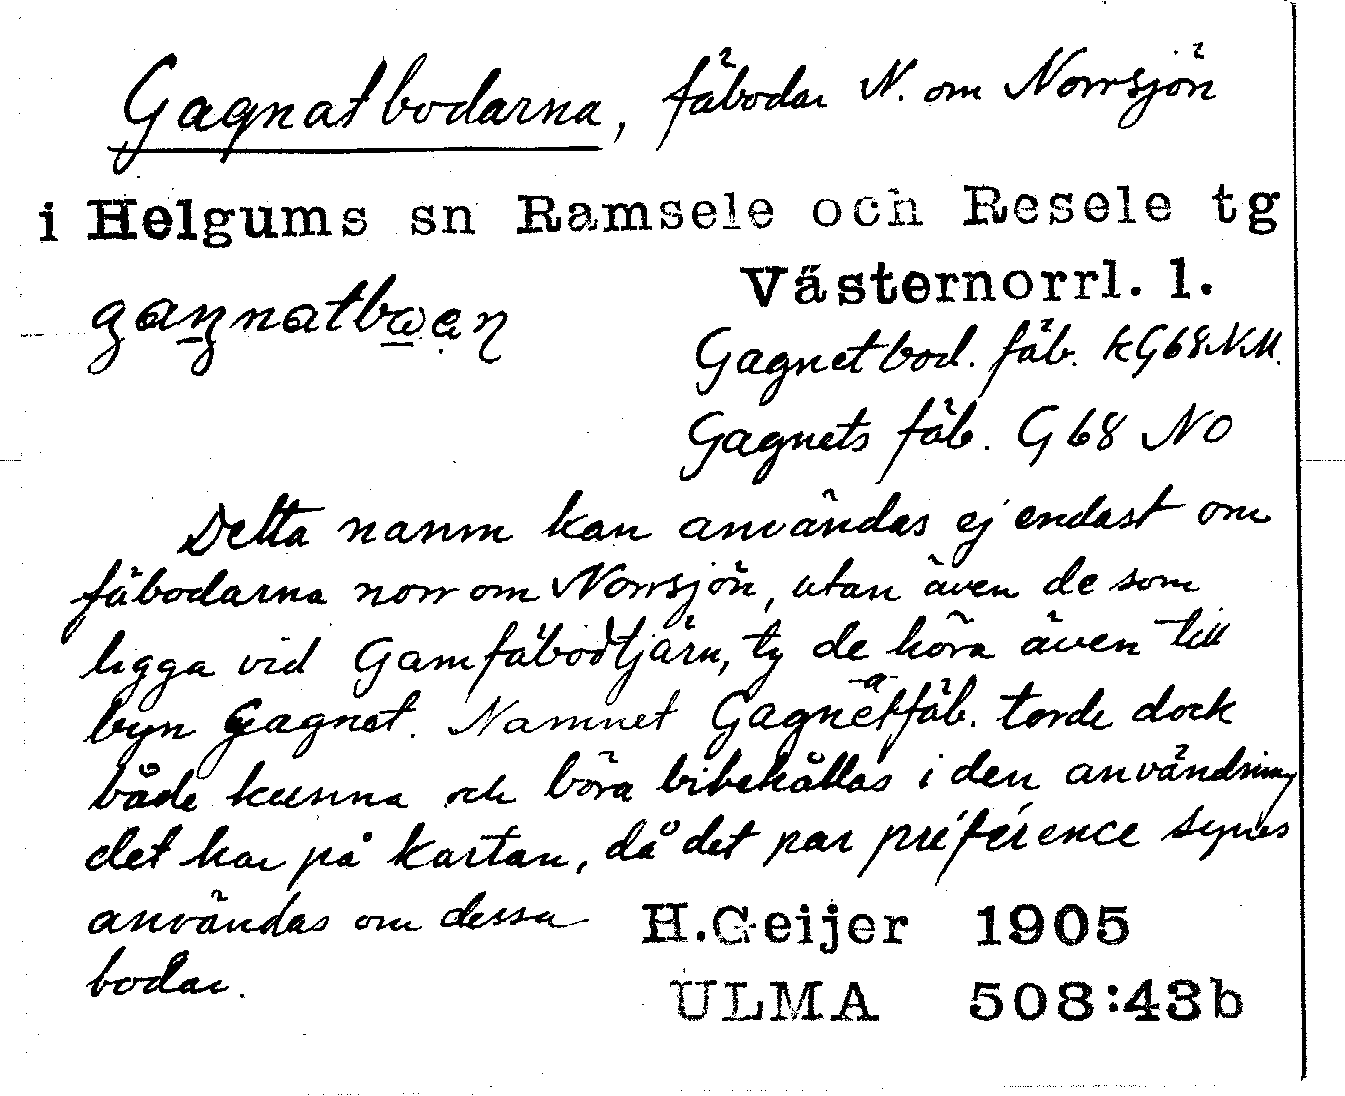 Gagnatbodarna, fäbodar N. om Norrsjön
i Helgums sn Ramsele och Resele tg
Västernorrl. l.
Gagnetbod. fäb. kG68NM.
Gagnets fäb. G 68 NO
Detta namn kan användas ej endast om
fäbodarna norr om Norrsjön, utan även de som
ligga vid Gamfäbodtjärn, ty de höra även till
byn Gagnet. Namnet Gagnatfäb. torde dock
både kunna och böra bibehållas i den användning
det har på kartan, då det par préférence synes
användas om dessa
bodar.
H.Geijer 1905
ULMA 508:43b